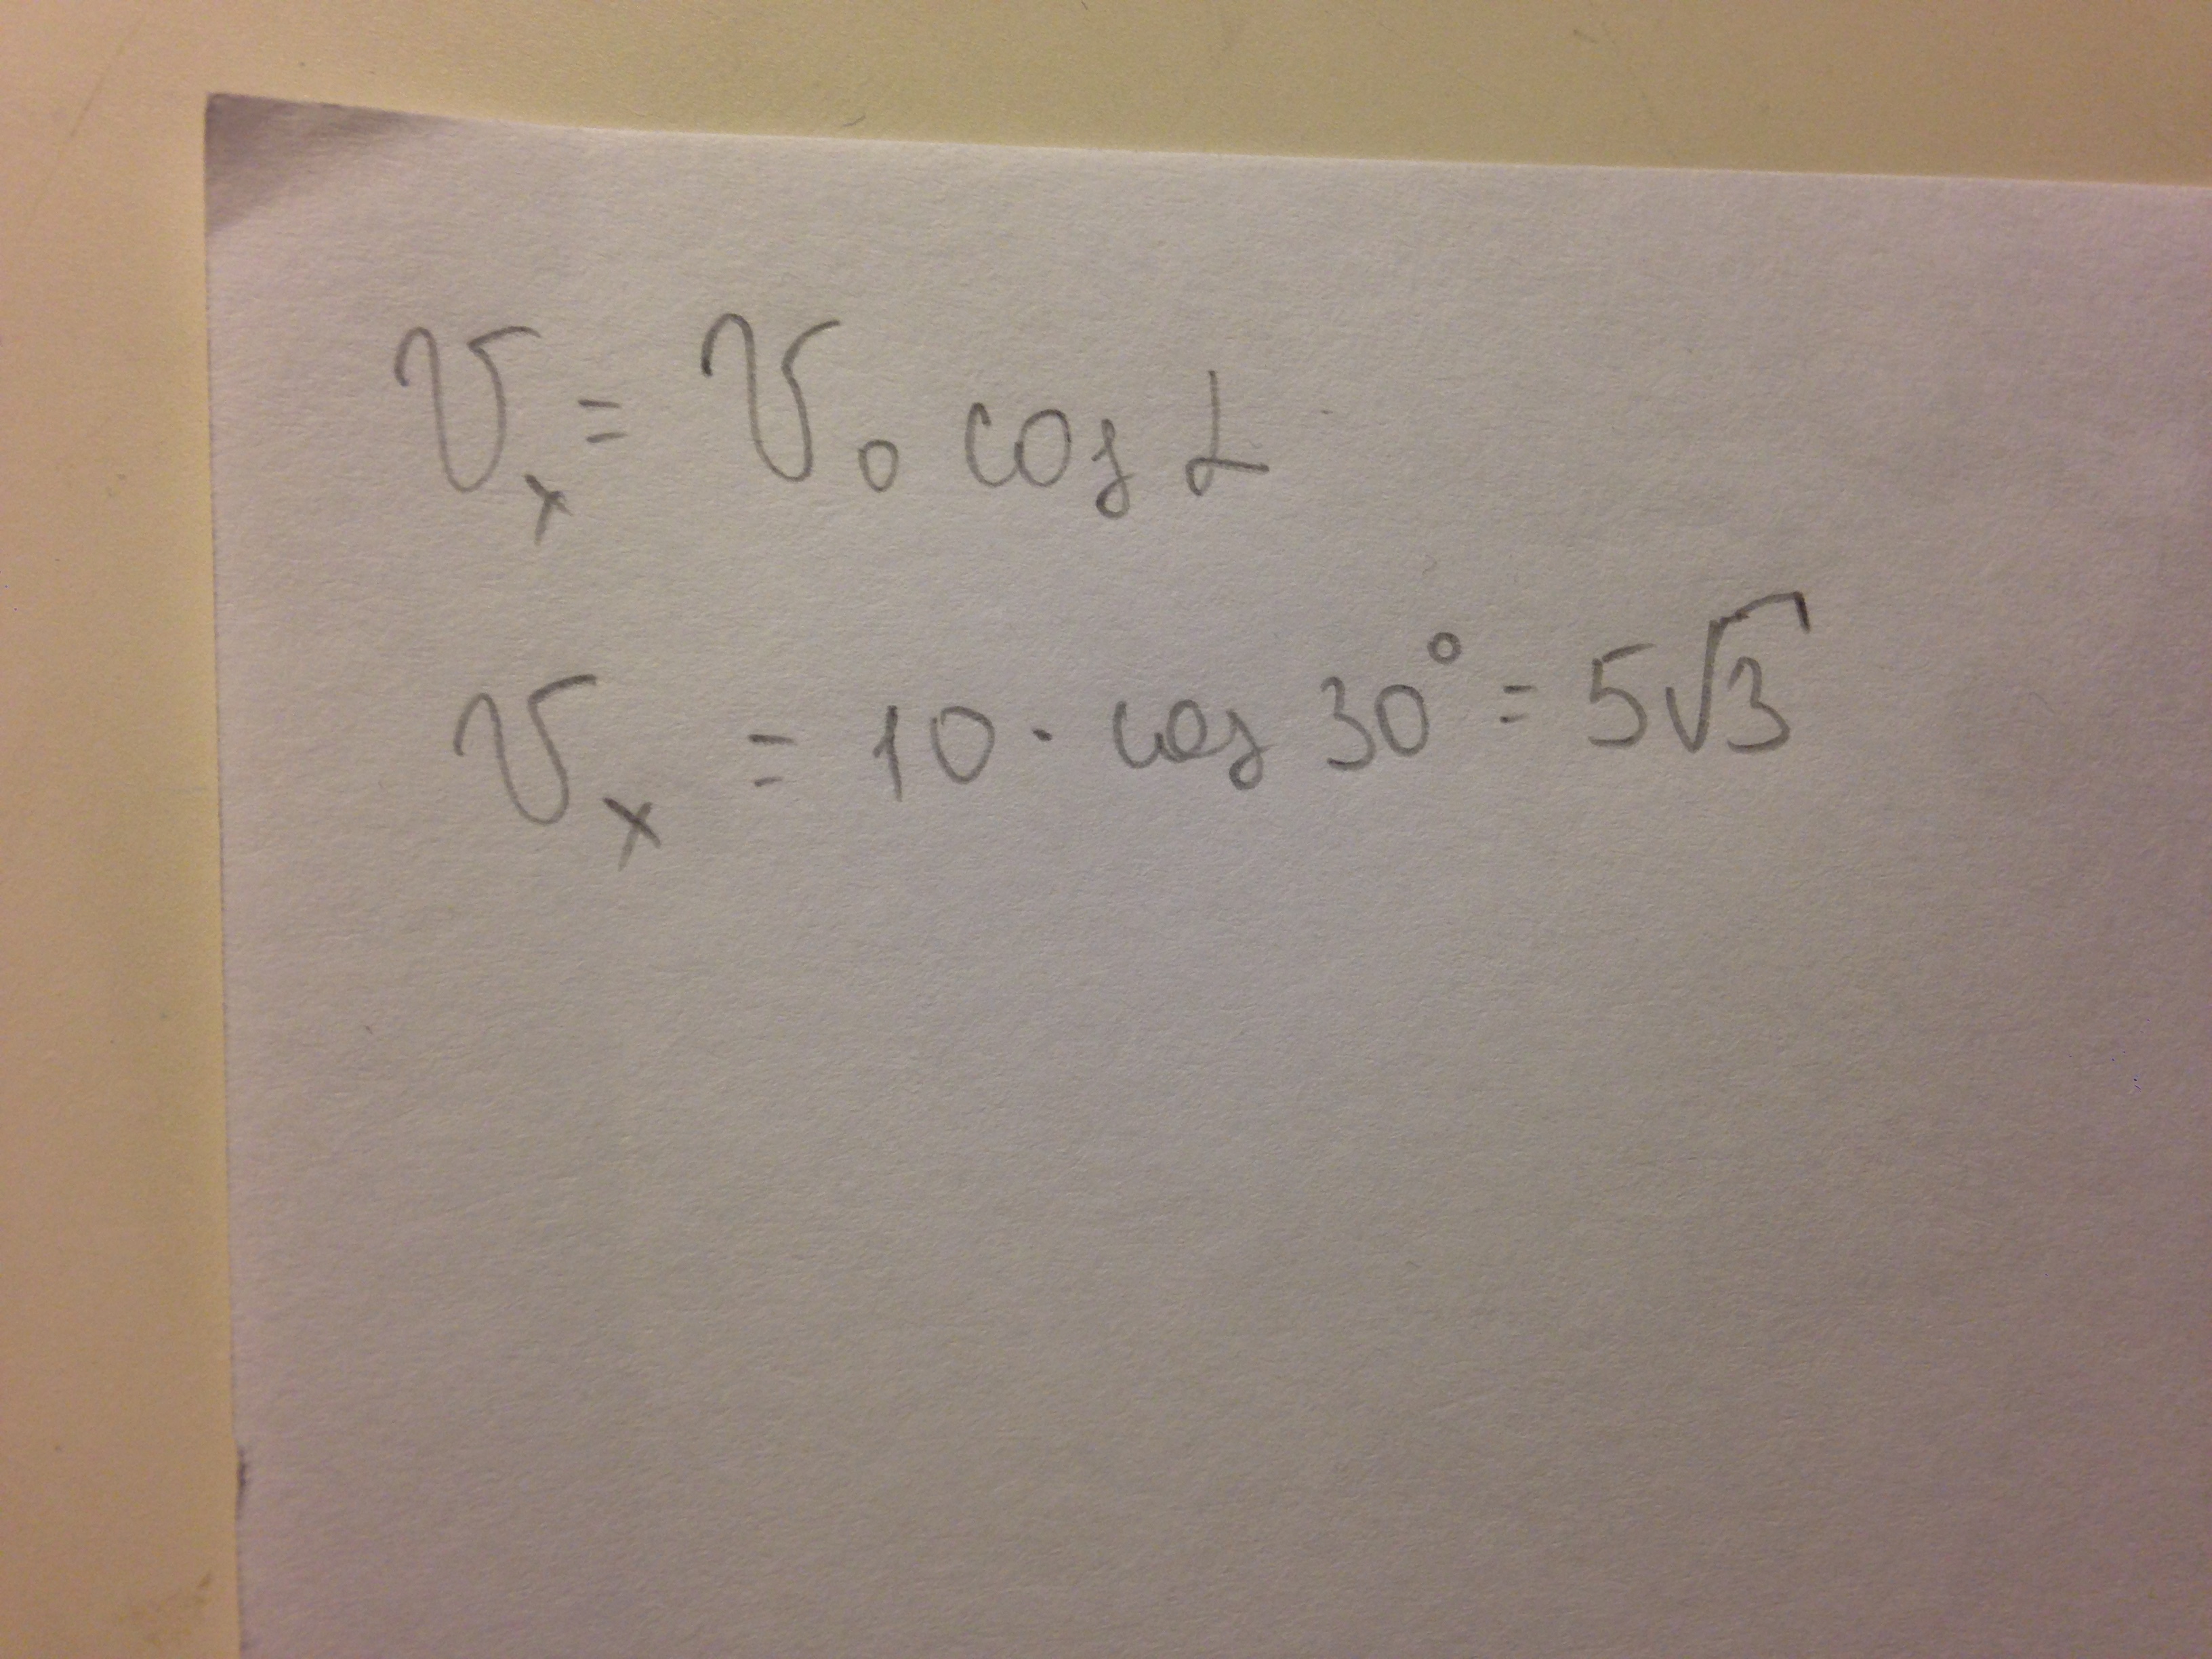 υₓ = υ₀ cos α
υₓ = 10 · cos 30° = 5√3